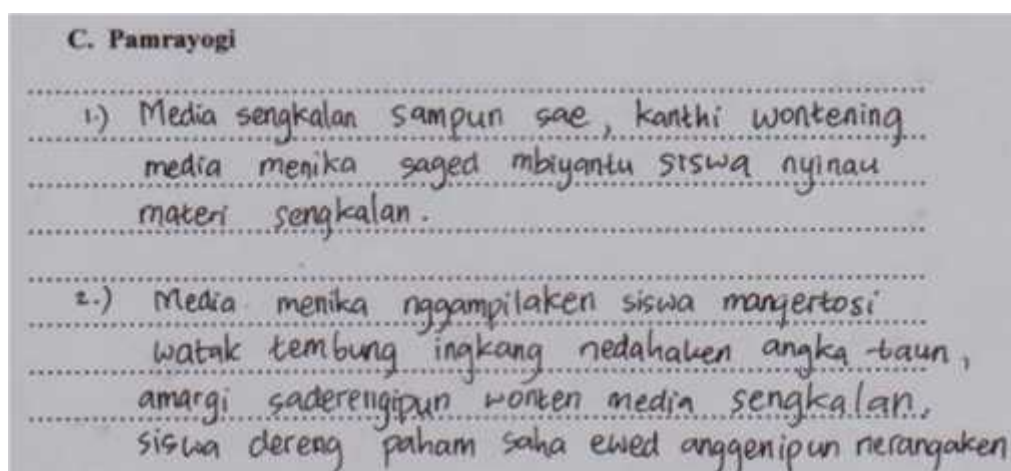 C. Pamrayogi
1.) Media sengkalan sampun sae, kanthi wontening
media menika saged mbiyantu siswa nyinau
materi sengkalan.
2.) Media menika nggampilaken siswa mangertosi
watak tembung ingkang nedahaken angka taun,
amargi saderengipun wonten media sengkalan,
siswa dereng paham saha ewed anggenipun nerangaken